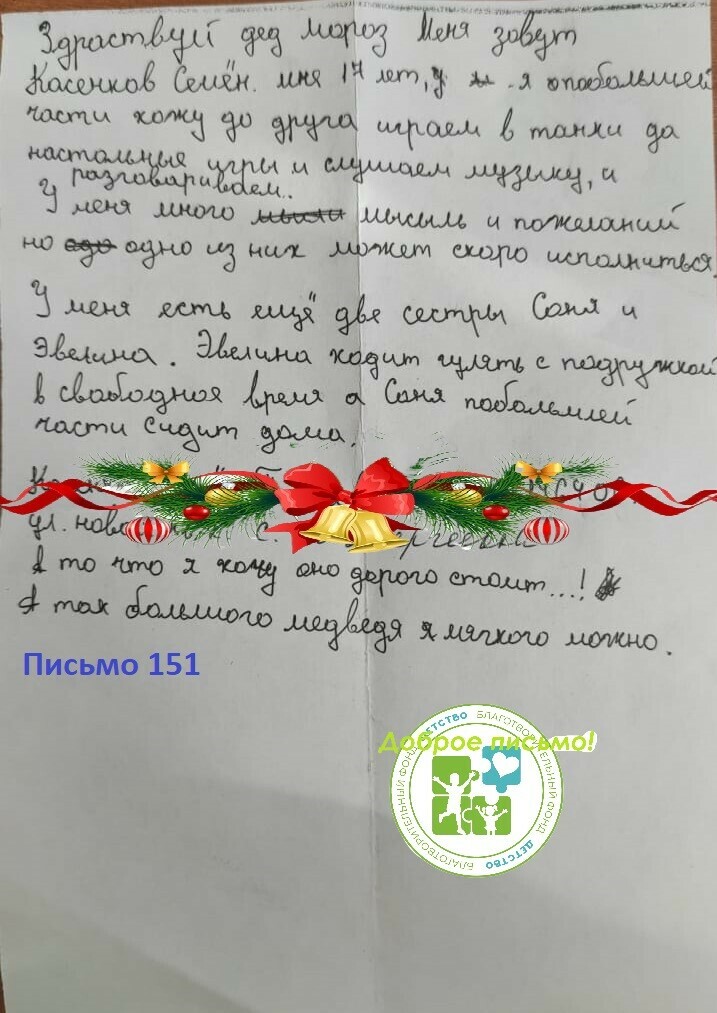 Здраствуй дед мороз Меня зовут
Касенков Семён. мне 17 лет, у я опобальшей
части хожу до друга играем в танки да
настольные игры и слушаем музыку, и
разговариваем..
У меня много мысыль и пожеланий
но одно из них может скоро исполниться.
У меня есть ещё две сестры Соня и
Эвелина. Эвелина ходит гулять с подружкой
в свабодное время а Саня побольшей
части сидит дома.
ул.
А то что я хочу оно дорого стоит...!
А так большого медведя мягкого можно.
Письмо 151
Доброе письмо!
БЛАГОТВОРИТЕЛЬНЫЙ ФОНД ДЕТСТВО
БЛАГОТВОРИТЕЛЬНЫЙ ФОНД ДЕТСТВО